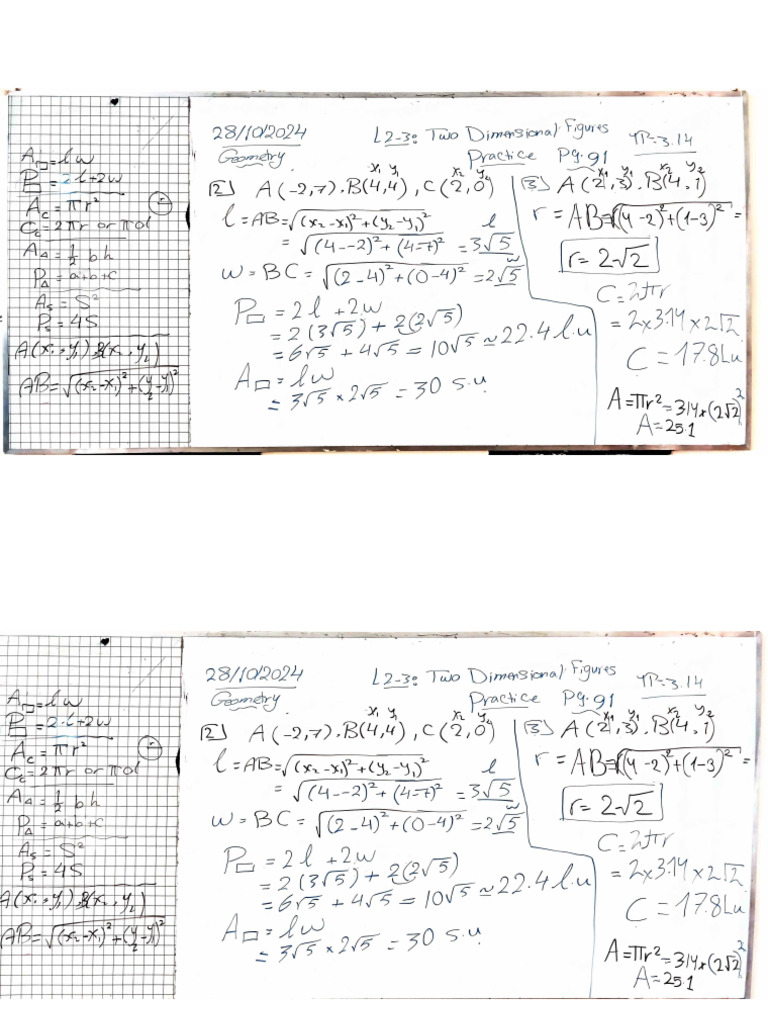 A▭ = l w
P▭ = 2 l + 2w
A_c = πr²
C_c = 2πr or πd
A_Δ = 1/2 b h
P_Δ = a+b+c
A_s = S²
P_s = 4S
A(x₁, y₁) B(x₂, y₂)
AB = √(x₂-x₁)² + (y₂-y₁)²
28/10/2024 L2-3: Two Dimensional Figures
Geometry Practice Pg. 91 π=3.14
x₁ y₁ x₂ y₂
2 A(-2,7). B(4,4), C(2,0)
l = AB = √(x₂-x₁)² + (y₂-y₁)²
= √(4--2)² + (4-7)² = 3√5 l
w = BC = √(2-4)² + (0-4)² = 2√5 w
P▭ = 2 l + 2.w
= 2(3√5) + 2(2√5)
= 6√5 + 4√5 = 10√5 ≃ 22.4 l.u
A▭ = l w
= 3√5 × 2√5 = 30 s.u
x₁ y₁ x₂ y₂
3 A(2,3). B(4,1)
r = AB = √(4-2)² + (1-3)² =
r = 2√2
C = 2πr
= 2×3.14×2√2
C = 17.8 Lu
A = πr² = 3.14×(2√2)²
A = 25.1
A▭ = l w
P▭ = 2 l + 2w
A_c = πr²
C_c = 2πr or πd
A_Δ = 1/2 b h
P_Δ = a+b+c
A_s = S²
P_s = 4S
A(x₁, y₁) B(x₂, y₂)
AB = √(x₂-x₁)² + (y₂-y₁)²
28/10/2024 L2-3: Two Dimensional Figures
Geometry Practice Pg. 91 π=3.14
x₁ y₁ x₂ y₂
2 A(-2,7). B(4,4), C(2,0)
l = AB = √(x₂-x₁)² + (y₂-y₁)²
= √(4--2)² + (4-7)² = 3√5 l
w = BC = √(2-4)² + (0-4)² = 2√5 w
P▭ = 2 l + 2.w
= 2(3√5) + 2(2√5)
= 6√5 + 4√5 = 10√5 ≃ 22.4 l.u
A▭ = l w
= 3√5 × 2√5 = 30 s.u
x₁ y₁ x₂ y₂
3 A(2,3). B(4,1)
r = AB = √(4-2)² + (1-3)² =
r = 2√2
C = 2πr
= 2×3.14×2√2
C = 17.8 Lu
A = πr² = 3.14×(2√2)²
A = 25.1